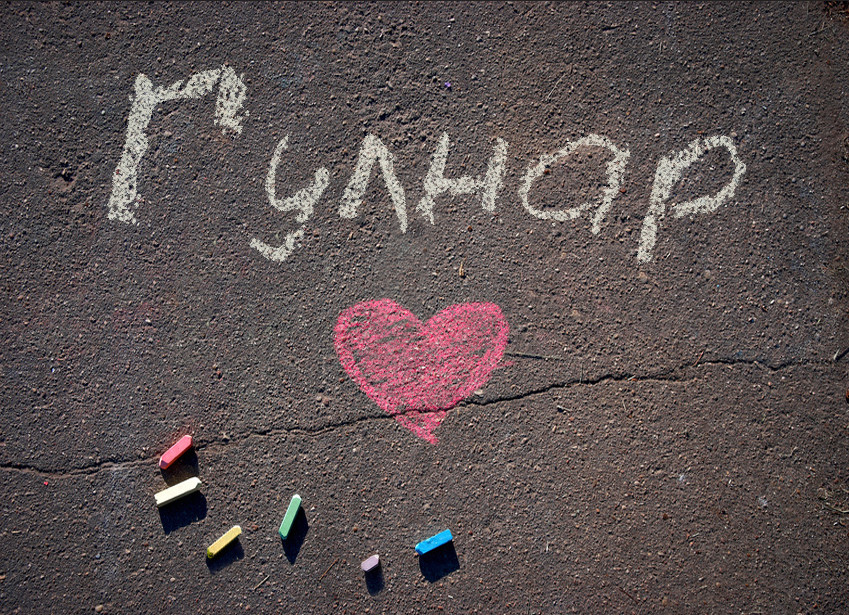 Гулнар